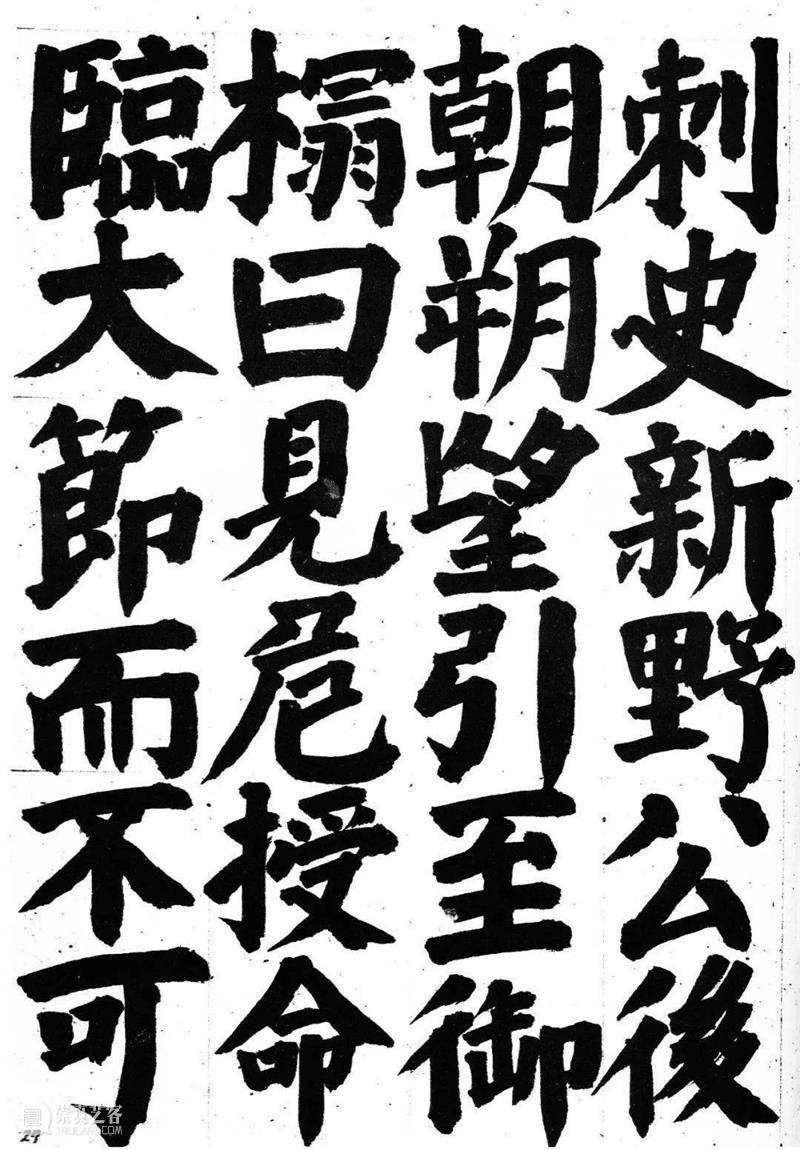 刺史新野公後
朝朔望引至御
榻曰見危授命
臨大節而不可
29
崇真艺客
TRUEART.COM